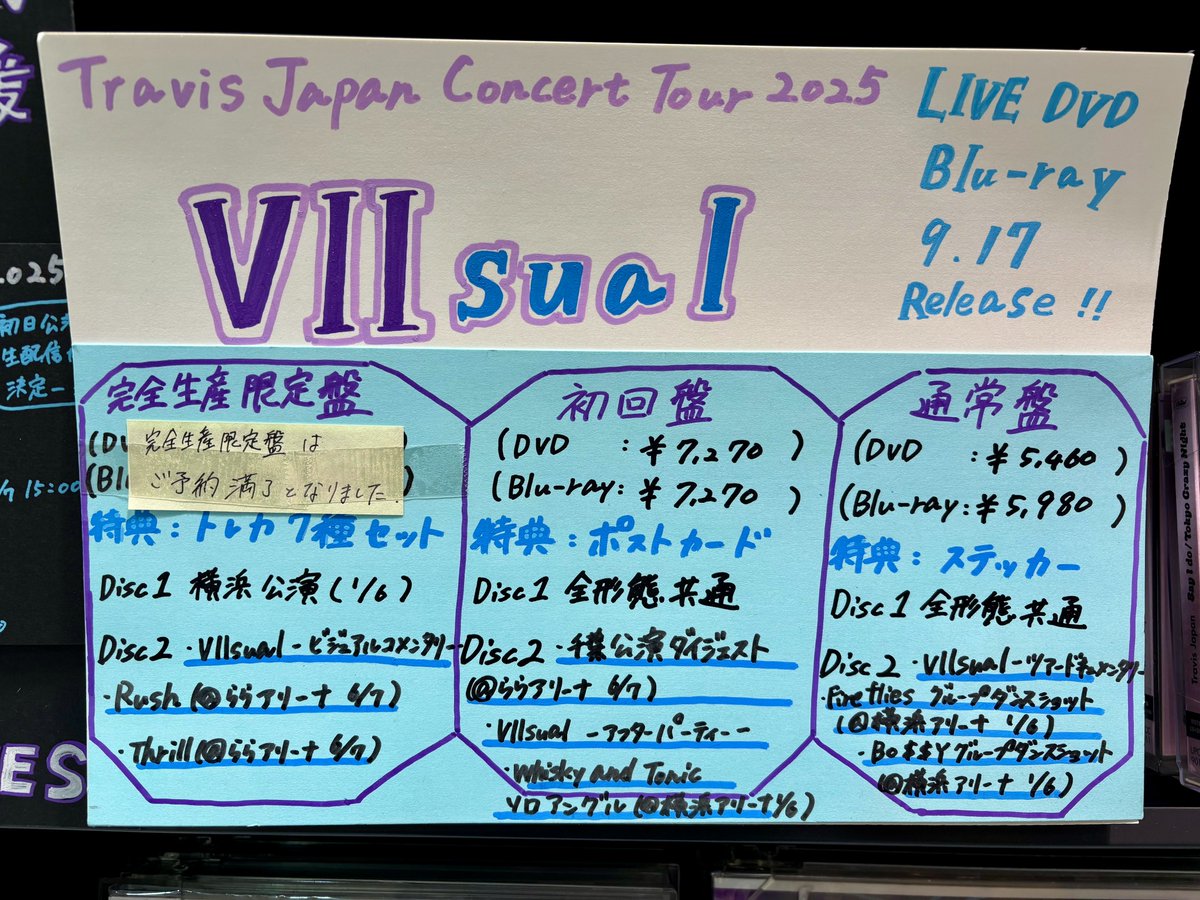 Travis Japan Concert Tour 2025
VIIsual
LIVE DVD
Blu-ray
9.17
Release !!
完全生産限定盤
(DV
(Blu
完全生産限定盤は
ご予約満了となりました.
特典:トレカ7種セット
Disc1 横浜公演(1/6)
Disc2 ・VIIsual-ビジュアルコメンタリー
・Rush(@ららアリーナ 6/7)
・Thrill(@ららアリーナ 6/7)
初回盤
(DVD :¥7,270 )
(Blu-ray:¥7,270 )
特典:ポストカード
Disc1 全形態共通
Disc2 ・千葉公演ダイジェスト
(@ららアリーナ 6/7)
・VIIsual -アフターパーティー-
・Whisky and Tonic
ソロアングル(@横浜アリーナ1/6)
通常盤
(DVD :¥5,460 )
(Blu-ray:¥5,980 )
特典:ステッカー
Disc1 全形態共通
Disc2 ・VIIsual-ツアードキュメンタリー
・Fireflies グループダンスショット
(@横浜アリーナ 1/6)
・BO$$Yグループダンスショット
(@横浜アリーナ 1/6)
2025
初日公
生配信
決定-
15:00
ES
Say I do / Tokyo Crazy Night
Travis Japan